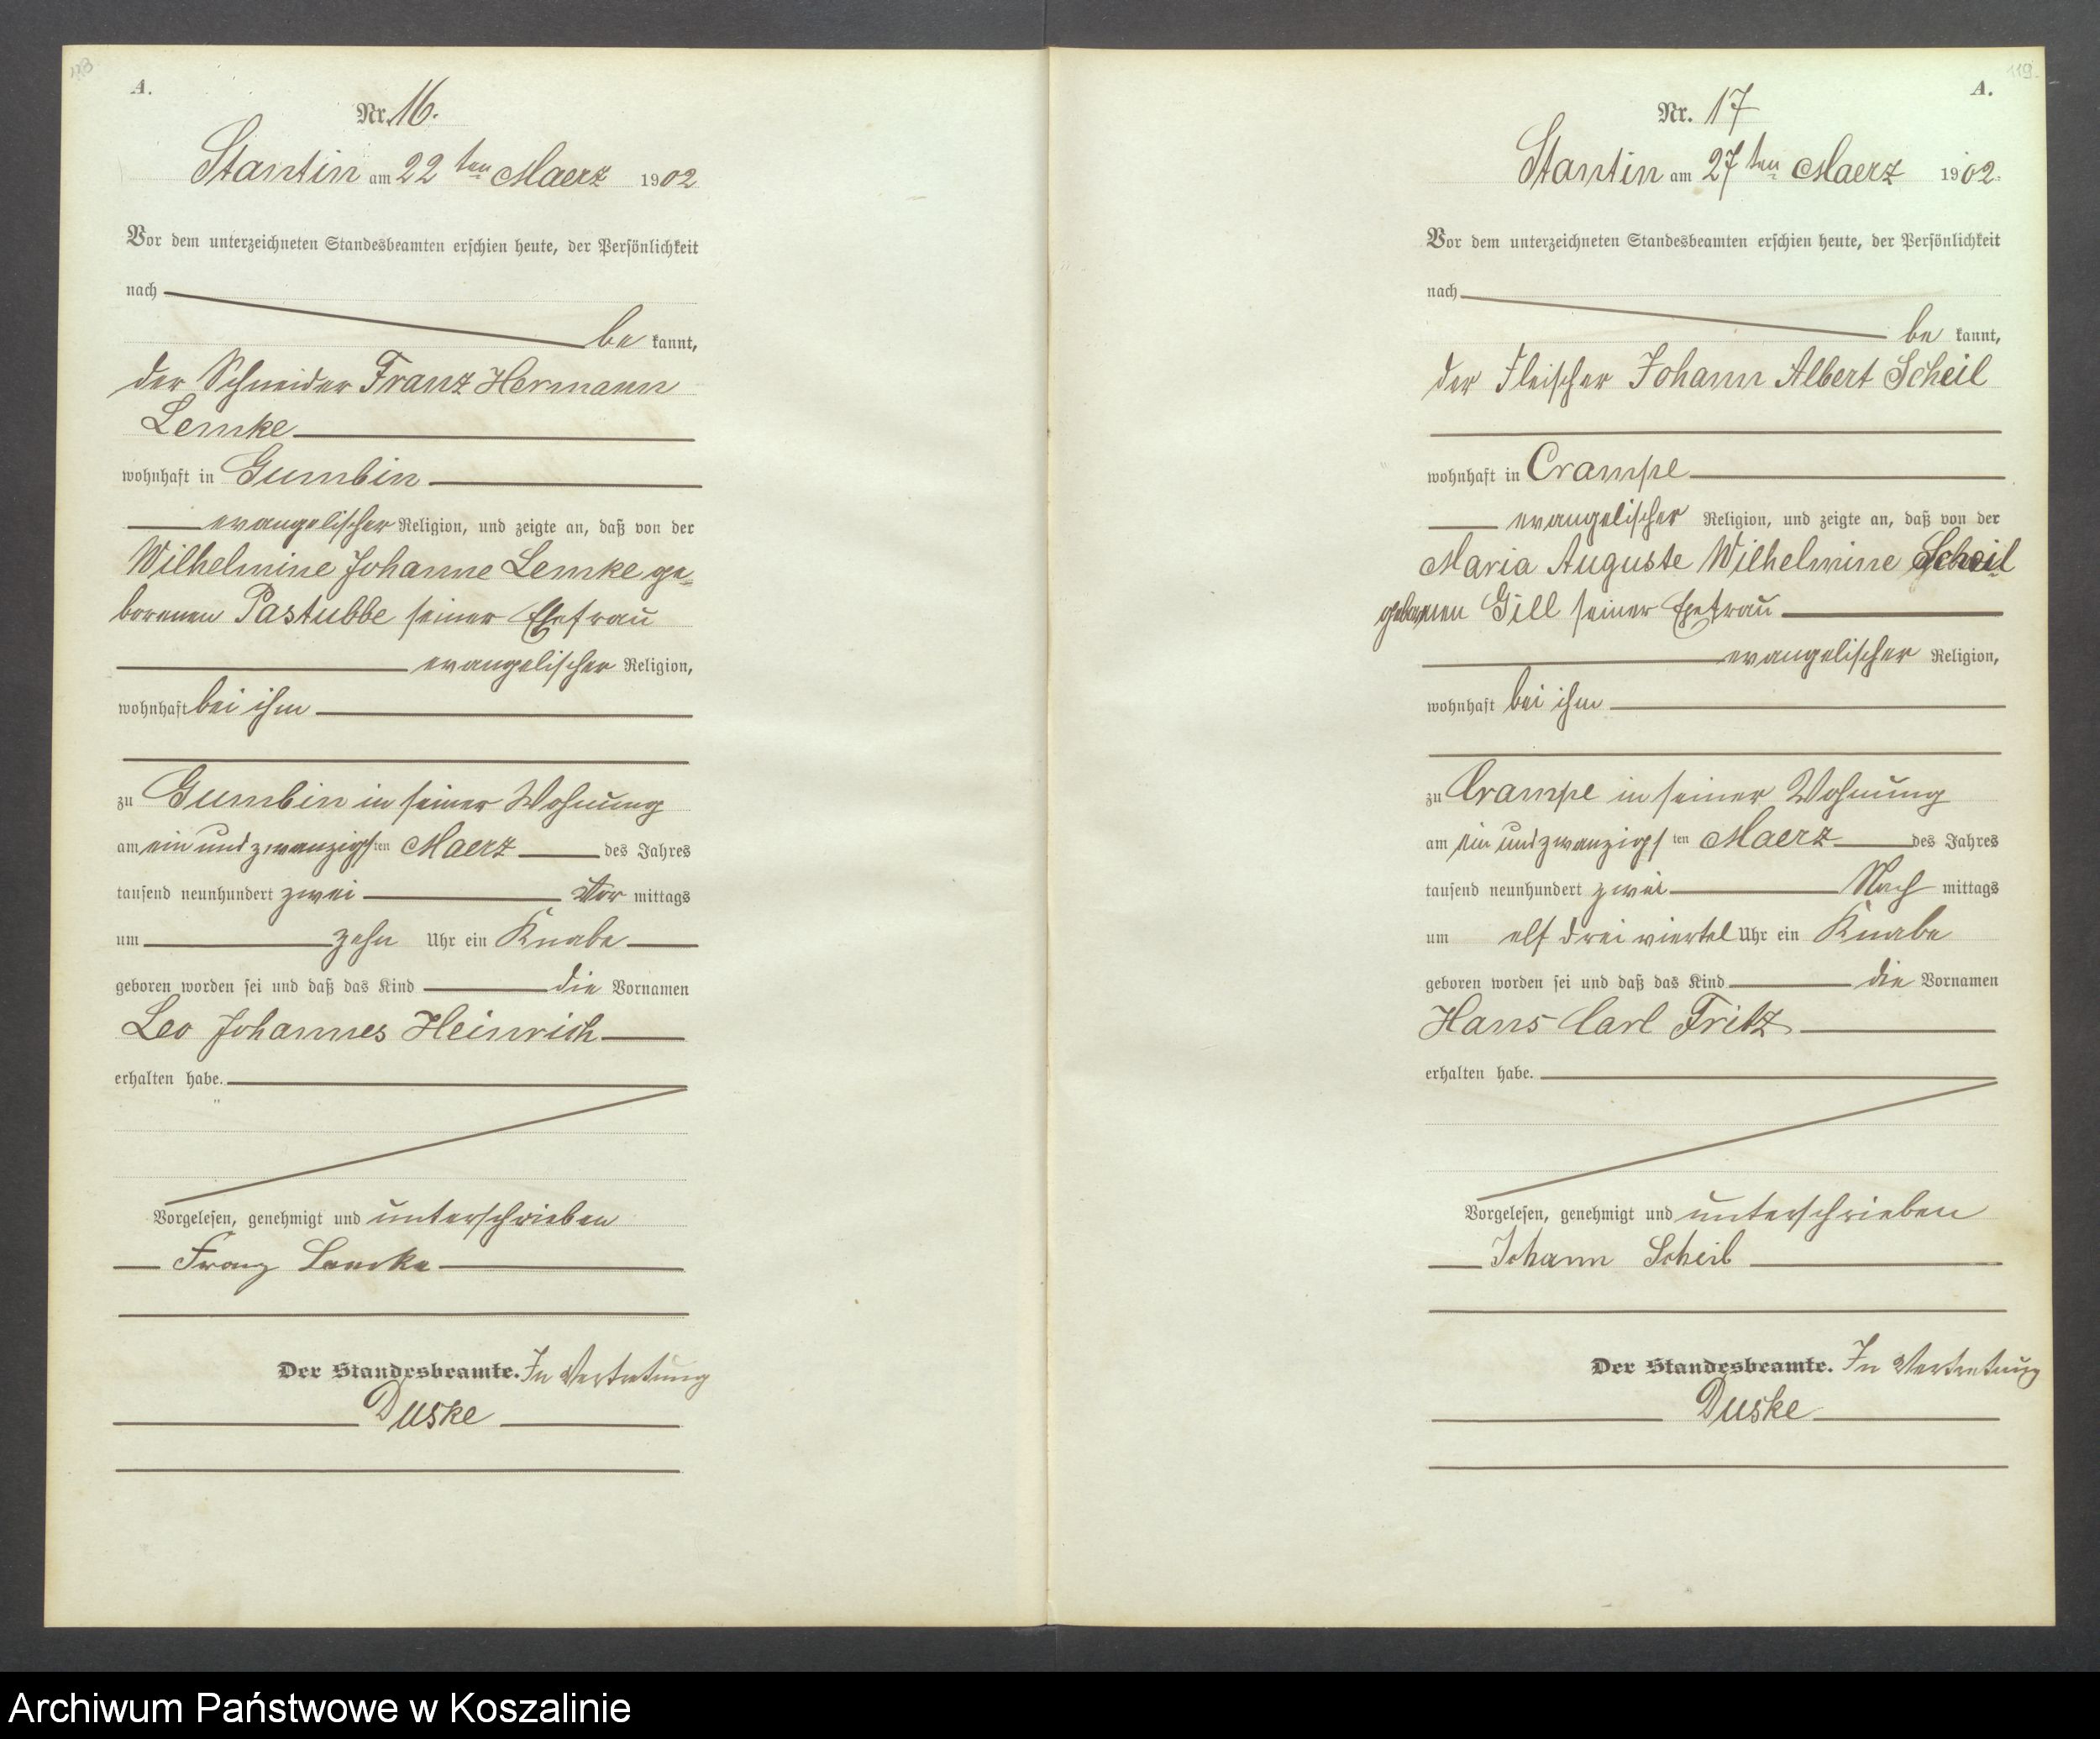 118
A.
Nr. 16.
Stantin am 22 ten Maerz 1902
Vor dem unterzeichneten Standesbeamten erschien heute, der Persönlichkeit
nach
be kannt,
der Schneider Franz Hermann
Lemke
wohnhaft in Gumbin
evangelischer Religion, und zeigte an, daß von der
Wilhelmine Johanne Lemke ge-
borenen Pastubbe seiner Ehefrau
evangelischer Religion,
wohnhaft bei ihm
zu Gumbin in seiner Wohnung
am ein und zwanzigsten Maerz des Jahres
tausend neunhundert zwei Vor mittags
um zehn Uhr ein Knabe
geboren worden sei und daß das Kind die Vornamen
Leo Johannes Heinrich
erhalten habe.
Vorgelesen, genehmigt und unterschrieben
Franz Lemke
Der Standesbeamte. In Vertretung
Duske
119.
A.
Nr. 17
Stantin am 27 ten Maerz 1902.
Vor dem unterzeichneten Standesbeamten erschien heute, der Persönlichkeit
nach
be kannt,
der Fleischer Johann Albert Scheil
wohnhaft in Crampe
evangelischer Religion, und zeigte an, daß von der
Maria Auguste Wilhelmine Scheil
geborenen Gill seiner Ehefrau
evangelischer Religion,
wohnhaft bei ihm
zu Crampe in seiner Wohnung
am ein und zwanzigsten Maerz des Jahres
tausend neunhundert zwei Nach mittags
um elf drei viertel Uhr ein Knabe
geboren worden sei und daß das Kind die Vornamen
Hans Carl Fritz
erhalten habe.
Vorgelesen, genehmigt und unterschrieben
Johann Scheil
Der Standesbeamte. In Vertretung
Duske
Archiwum Państwowe w Koszalinie